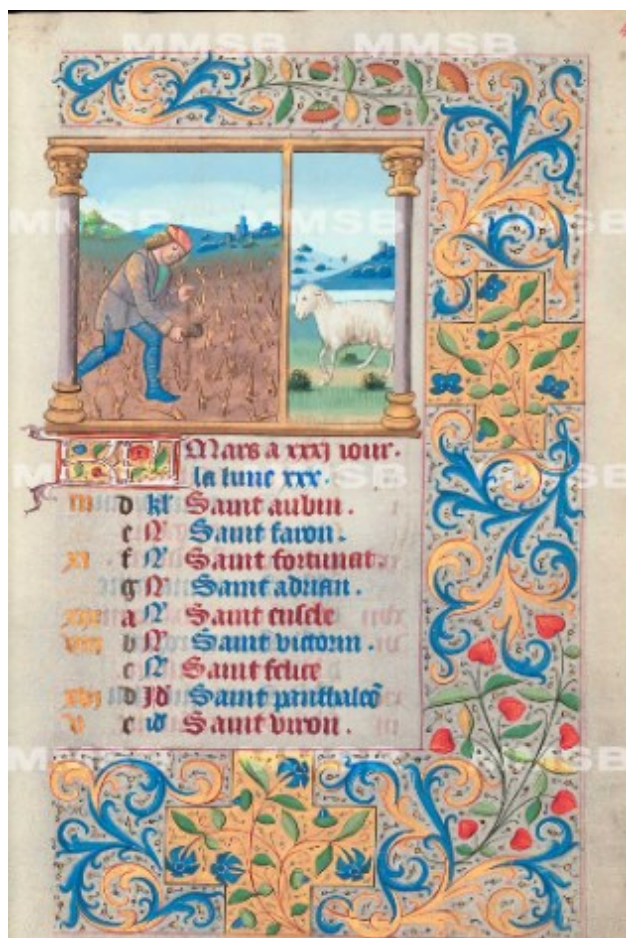 MMSB MMSB
MMSB MMSB MMSB
Mars a xxxj iour.
la lune xxx.
iii d kl Saint aubin.
e N Saint faron.
xi f N Saint fortunat.
g N Saint adrian.
a N Saint eusele
viii b N Saint victorin.
c N Saint felice
xvj d Jd Saint panthaleõ
v e id Saint viron.